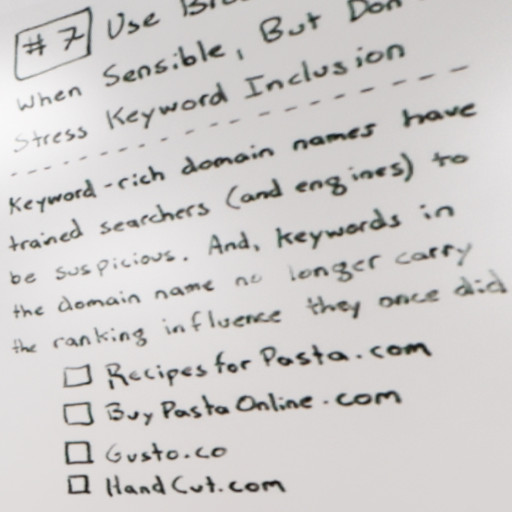 #7 Use
When Sensible, But Don
Stress Keyword Inclusion
Keyword-rich domain names have
trained searchers (and engines) to
be suspicious. And, keywords in
the domain name no longer carry
the ranking influence they once did
RecipesforPasta.com
BuyPastaOnline.com
Gusto.co
HandCut.com